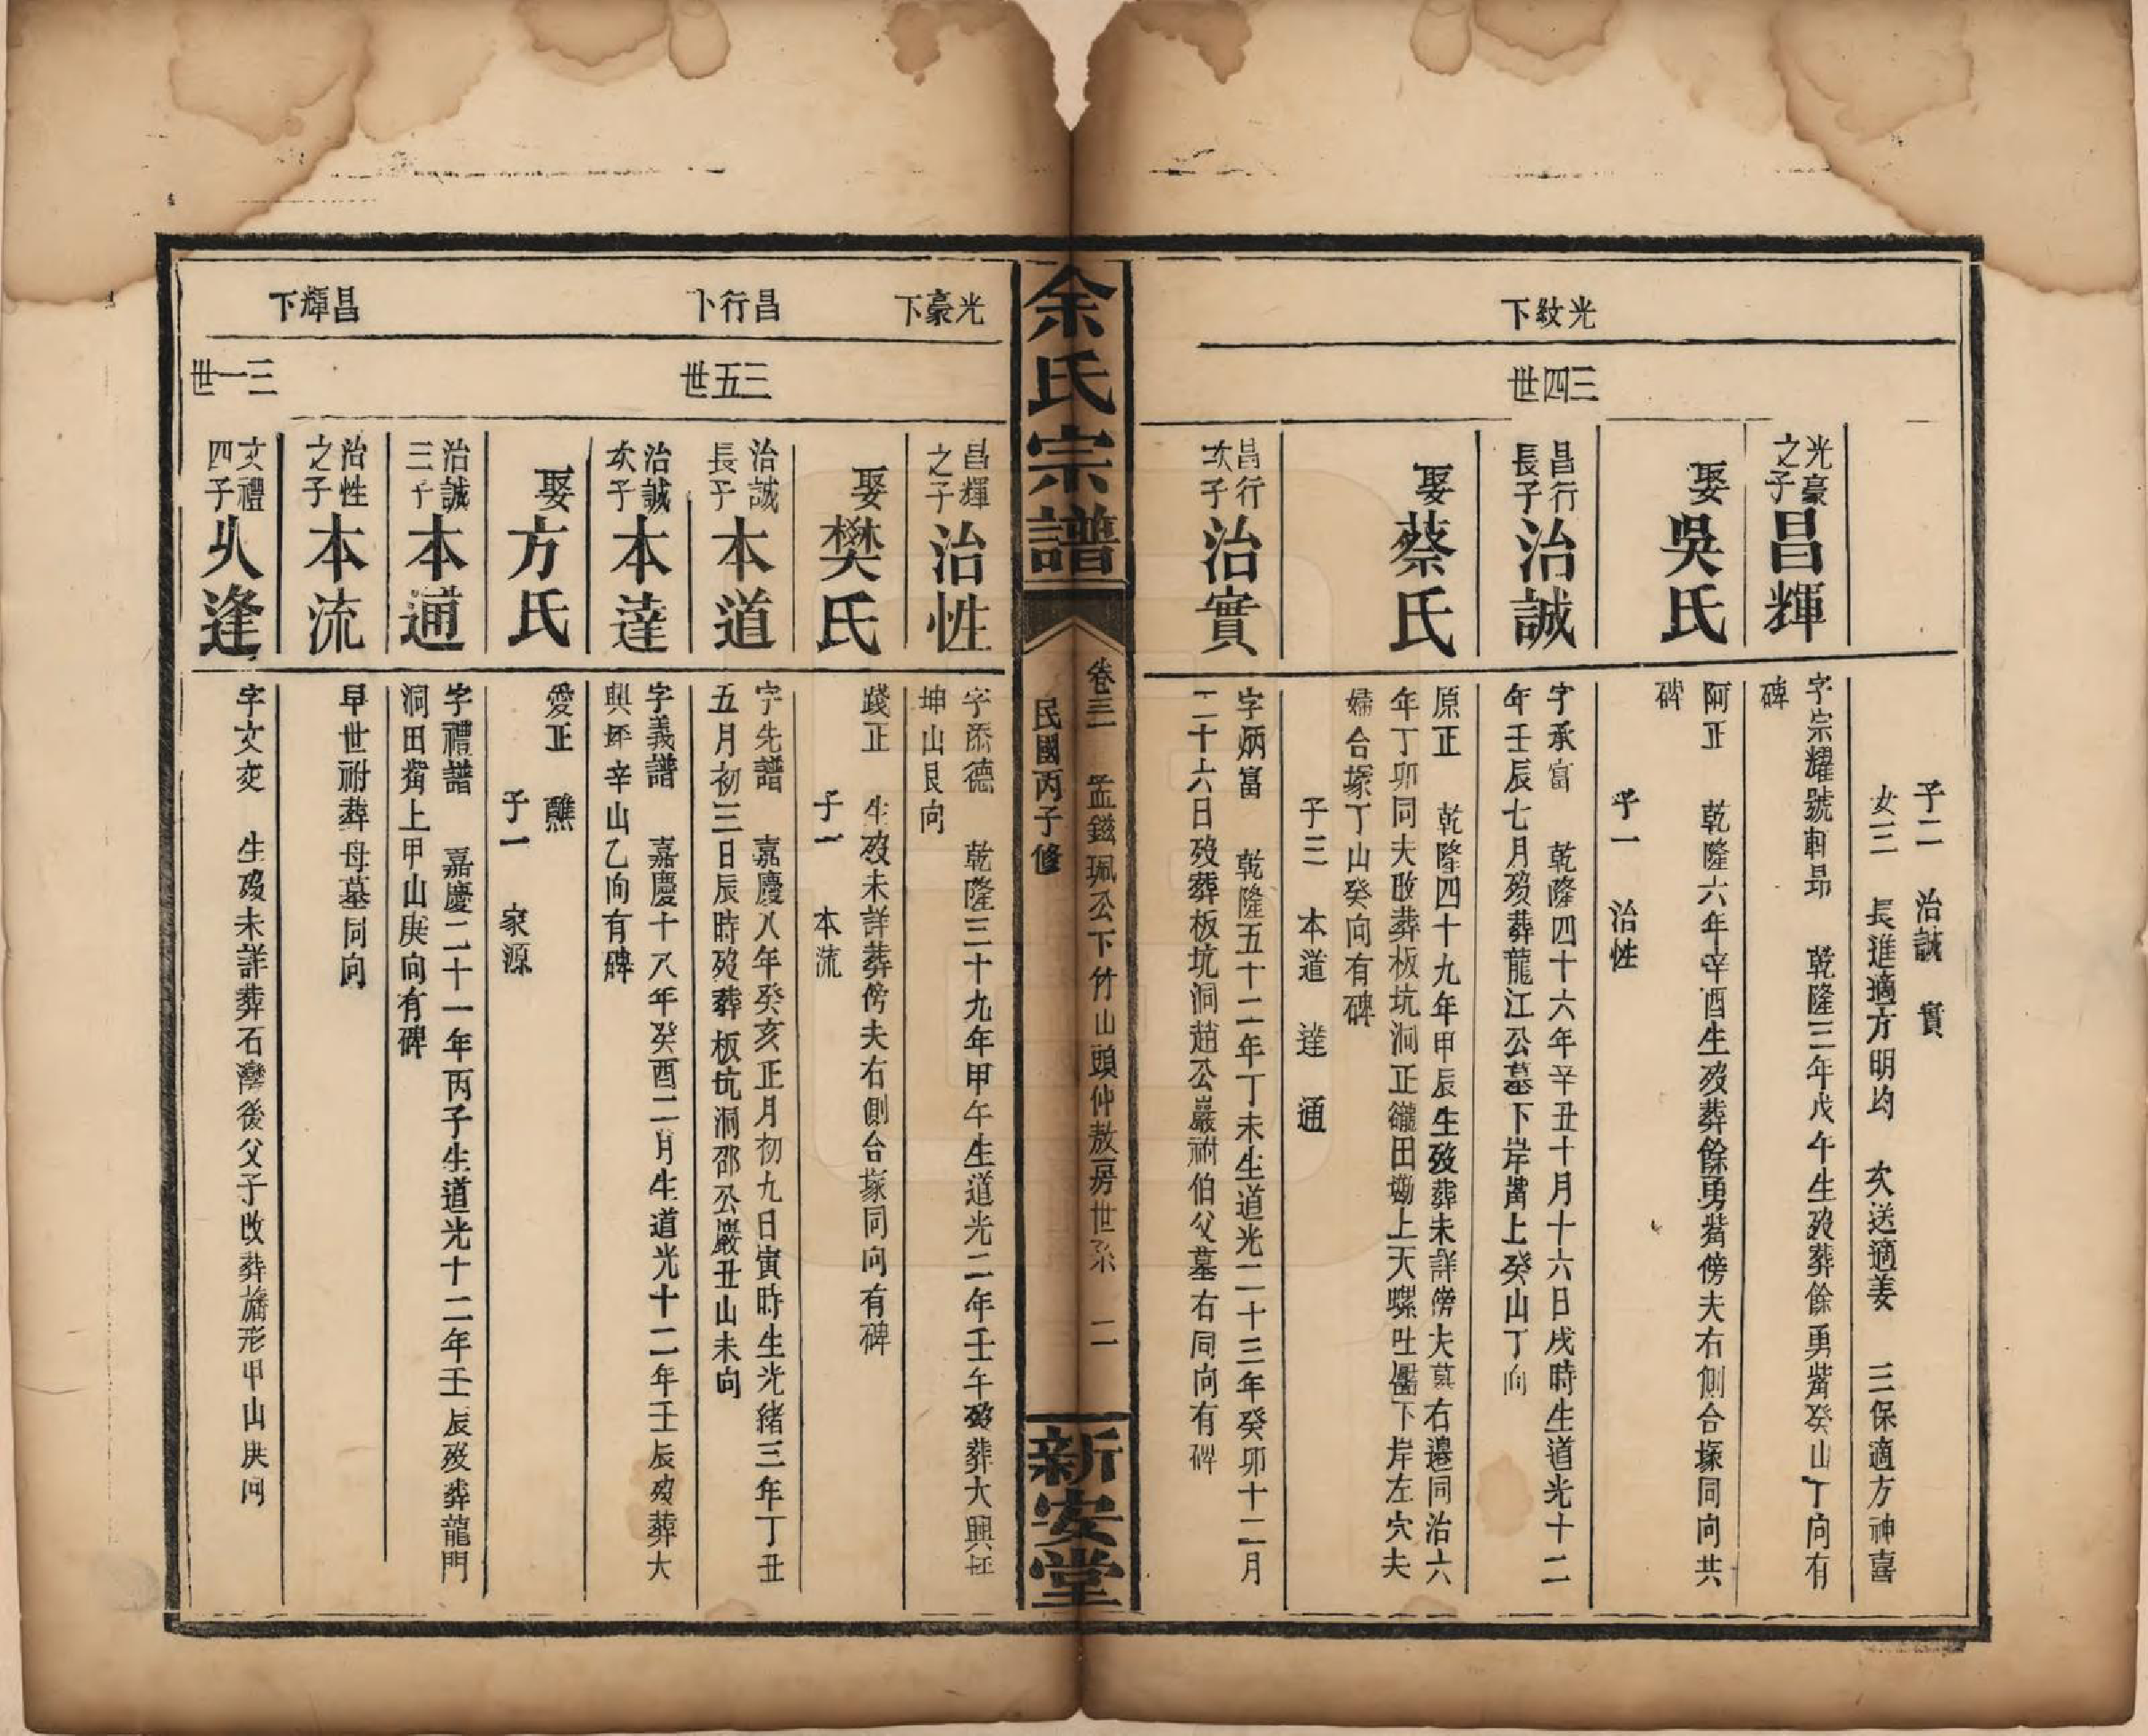 光紋下
三四世
子二 治誠 實
女三 長進適方明均 次送適姜 三保適方神喜
光豪之子 昌輝
字宗耀號軒昻 乾隆三年戊午生歿葬餘勇觜癸山丁向有
碑
娶吳氏
阿正 乾隆六年辛酉生歿葬餘勇觜傍夫右側合塚同向共
碑
子一 治性
昌行長子 治誠
字承富 乾隆四十六年辛丑十月十六日戌時生道光十二
年壬辰七月歿葬龍江公墓下岸觜上癸山丁向
娶蔡氏
原正 乾隆四十九年甲辰生歿葬未詳傍夫墓右邉同治六
年丁卯同夫改葬板坑洞正壠田墈上天螺吐靨下岸左穴夫
婦合塚丁山癸向有碑
子三 本道 達 通
昌行次子 治實
字炳富 乾隆五十二年丁未生道光二十三年癸卯十二月
二十六日歿葬板坑洞趙公嚴祔伯父墓右同向有碑
余氏宗譜
卷三 孟鎡珮公下竹山頭仲敖房世系 二
民國丙子修
新安堂
光豪下
昌行下
昌輝下
三五世
三一世
昌輝之子 治性
字添德 乾隆三十九年甲午生道光二年壬午歿葬大興坵
坤山艮向
娶樊氏
踐正 生歿未詳葬傍夫右側合塚同向有碑
子一 本流
治誠長子 本道
字先譜 嘉慶八年癸亥正月初九日寅時生光緒三年丁丑
五月初三日辰時歿葬板坑洞邵公嚴丑山未向
治誠次子 本達
字義譜 嘉慶十八年癸酉二月生道光十二年壬辰歿葬大
興坪辛山乙向有碑
娶方氏
愛正 醮
子一 家源
治誠三子 本通
字禮譜 嘉慶二十一年丙子生道光十二年壬辰歿葬龍門
洞田觜上甲山庚向有碑
治性之子 本流
早世祔葬母墓同向
文禮四子 火逢
字文奕 生歿未詳葬石灣後父子改葬旛形甲山庚向